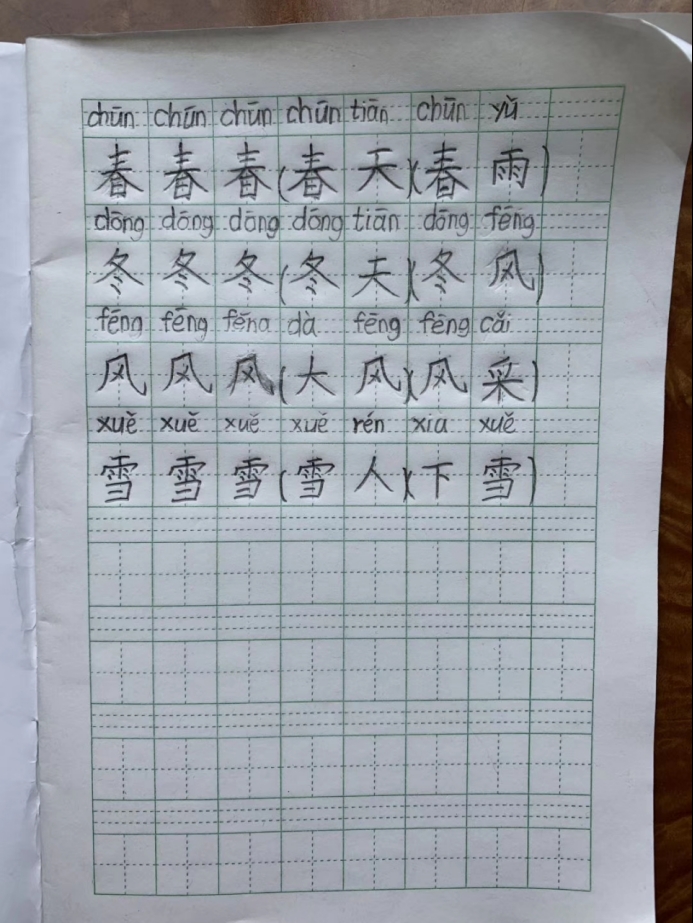 chūn chūn chūn chūn tiān chūn yǔ
春 春 春 (春 天)(春 雨)
dōng dōng dōng dōng tiān dōng fēng
冬 冬 冬 (冬 天)(冬 风)
fēng fēng fēng dà fēng fēng cǎi
风 风 风 (大 风)(风 采)
xuě xuě xuě xuě rén xià xuě
雪 雪 雪 (雪 人)(下 雪)